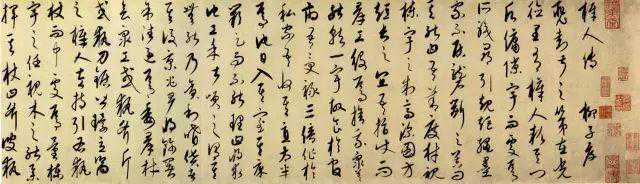 梓人傳 柳子厚
裴封叔之第在光
德里有梓人款其門
願傭隙宇而處焉
所職尋引規矩繩墨
家不居礱斲之器問
其能曰吾善度材視
棟宇之制高深圓方
短長之宜吾指使而
群工役焉捨我衆莫
能就一宇故食於官
府吾受祿三倍作於
私家吾收其直太半
焉他日入其室其床
闕足而不能理曰將求
他工余甚笑之謂其無
能而貪祿嗜貨者
其後京兆尹將飾官
署余往過焉委群材
會衆工或執斧斤
或執刀鋸皆環立嚮
之梓人左持引右執
杖而中處焉量棟
宇之任視木之能舉
揮其杖曰斧彼執